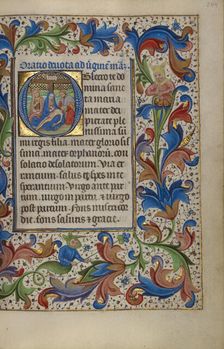 Oratio deuota ad uirginē mariā
Obsecro te do
mina sanc
ta maria
mater dei
pietate ple
nissima sū
mi regis filia. mater glorio sis
sima. mater orphanorū. con
solatio desolatorum. Via er
rantium. salus et spes in te
sperantium. virgo ante par
tum. virgo in partu. virgo
post partum. fons miseri cor
die. fons salutis et gracie.